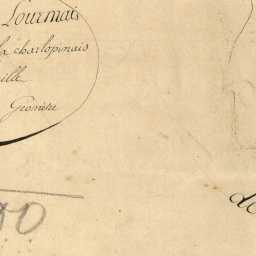 Lourmais
la charlopinais
ille
Géomètre
do